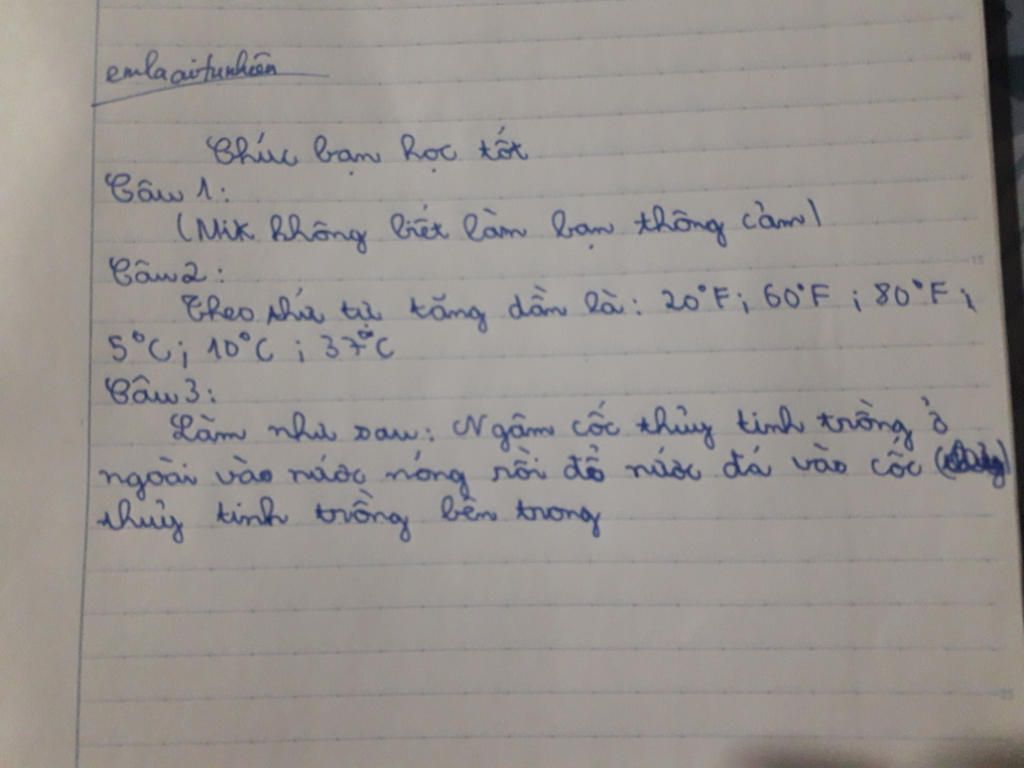 emlaaitunhiên
Chúc bạn học tốt
Câu 1:
(Mik không biết làm bạn thông cảm)
Câu 2:
Theo thứ tự tăng dần là: 20°F; 60°F; 80°F;
5°C; 10°C; 37°C
Câu 3:
Làm như sau: Ngâm cốc thủy tinh trồng ở
ngoài vào nước nóng rồi đổ nước đá vào cốc
thủy tinh trồng bên trong